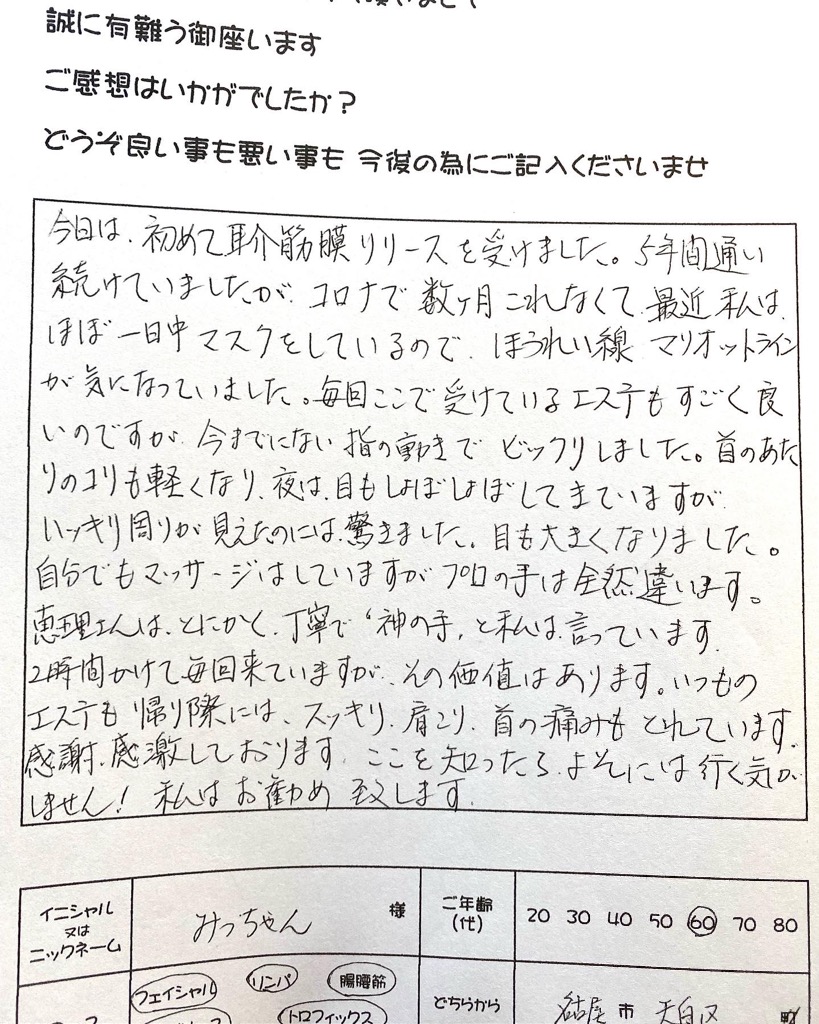 誠に有難う御座います
ご感想はいかがでしたか？
どうぞ良い事も悪い事も 今後の為にご記入くださいませ
今日は、初めて耳介筋膜リリースを受けました。5年間通い
続けていましたが、コロナで数ヶ月これなくて、最近私は、
ほぼ一日中マスクをしているので、ほうれい線、マリオットライン
が気になっていました。毎回ここで受けているエステもすごく良
いのですが、今までにない指の動きでビックリしました。首のあた
りのコリも軽くなり、夜は、目もしょぼしょぼしてきていますが
いっきり周りが見えたのには、驚きました。目も大きくなりました。
自分でもマッサージはしていますがプロの手は全然違います。
恵理さんは、とにかく、丁寧で‘神の手’と私は、言っています。
2時間かけて毎回来ていますが、その価値はあります。いつもの
エステも帰り際には、スッキリ、肩こり、首の痛みもとれています。
感謝、感激しております。ここを知ったら、よそには行く気が
しません！ 私はお勧め致します。
イニシャル 又は ニックネーム みっちゃん 様 ご年齢(代) 20 30 40 50 60 70 80
フェイシャル リンパ 腸腰筋 どちらから 名古屋 市 天白区 町
トロフィックス